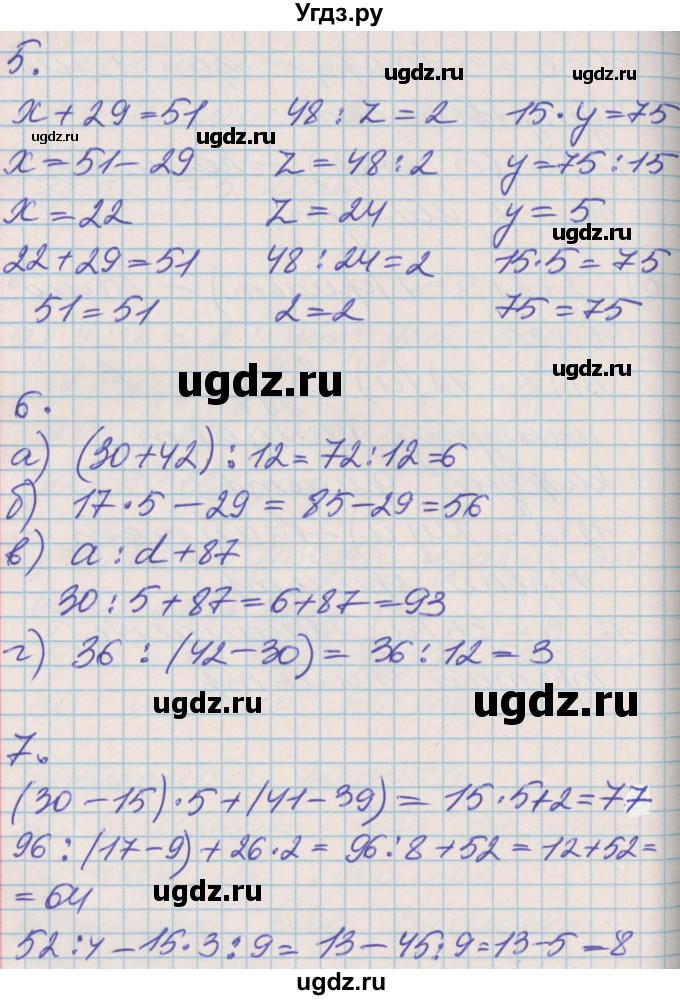 Угдз.ру
5.
ugdz.ru
x + 29 = 51    48 : z = 2    15 · y = 75
ugdz.ru    ugdz.ru
x = 51 - 29    z = 48 : 2    y = 75 : 15
x = 22    z = 24    y = 5
ugdz.ru
22 + 29 = 51    48 : 24 = 2    15 · 5 = 75
51 = 51    2 = 2    75 = 75
ugdz.ru    ugdz.ru
6.
а) (30 + 42) : 12 = 72 : 12 = 6
б) 17 · 5 - 29 = 85 - 29 = 56
в) a : d + 87
30 : 5 + 87 = 6 + 87 = 93
г) 36 : (42 - 30) = 36 : 12 = 3
ugdz.ru    ugdz.ru
7.
(30 - 15) · 5 + (41 - 39) = 15 · 5 + 2 = 77
96 : (17 - 9) + 26 · 2 = 96 : 8 + 52 = 12 + 52 =
= 64
ugdz.ru    ugdz.ru
52 : 4 - 15 · 3 : 9 = 13 - 45 : 9 = 13 - 5 = 8
ugdz.ru